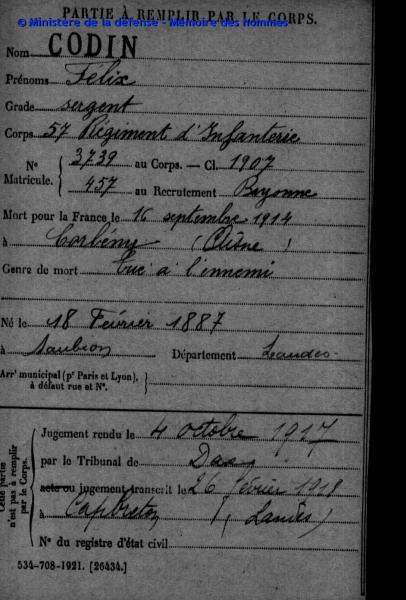 PARTIE À REMPLIR PAR LE CORPS.
© Ministère de la défense - Mémoire des hommes
Nom CODIN
Prénoms Félix
Grade sergent
Corps 57 Régiment d'Infanterie
N° Matricule. { 3739 au Corps. — Cl. 1907
457 au Recrutement Bayonne
Mort pour la France le 16 septembre 1914
à Corbény (Aisne)
Genre de mort Tué à l'ennemi
Né le 18 Février 1887
à Saubion Département Landes
Arr' municipal (p' Paris et Lyon), à défaut rue et N°. }
Cette partie n'est pas à remplir par le Corps.
Jugement rendu le 4 octobre 1917
par le Tribunal de Dax
acte ou jugement transcrit le 26 février 1918
à Capbreton (Landes)
N° du registre d'état civil
534-708-1921. [26434.]